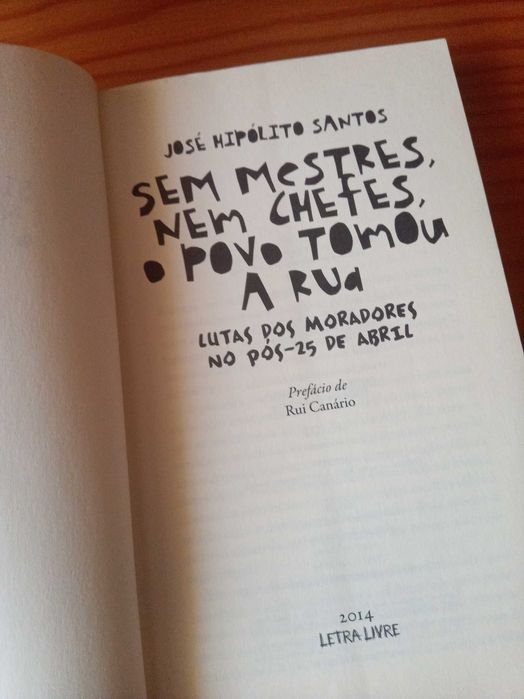 JOSÉ HIPÓLITO SANTOS
SEM MESTRES,
NEM CHEFES,
O POVO TOMOU
A RUA
LUTAS DOS MORADORES
NO PÓS-25 DE ABRIL
Prefácio de
Rui Canário
2014
LETRA LIVRE